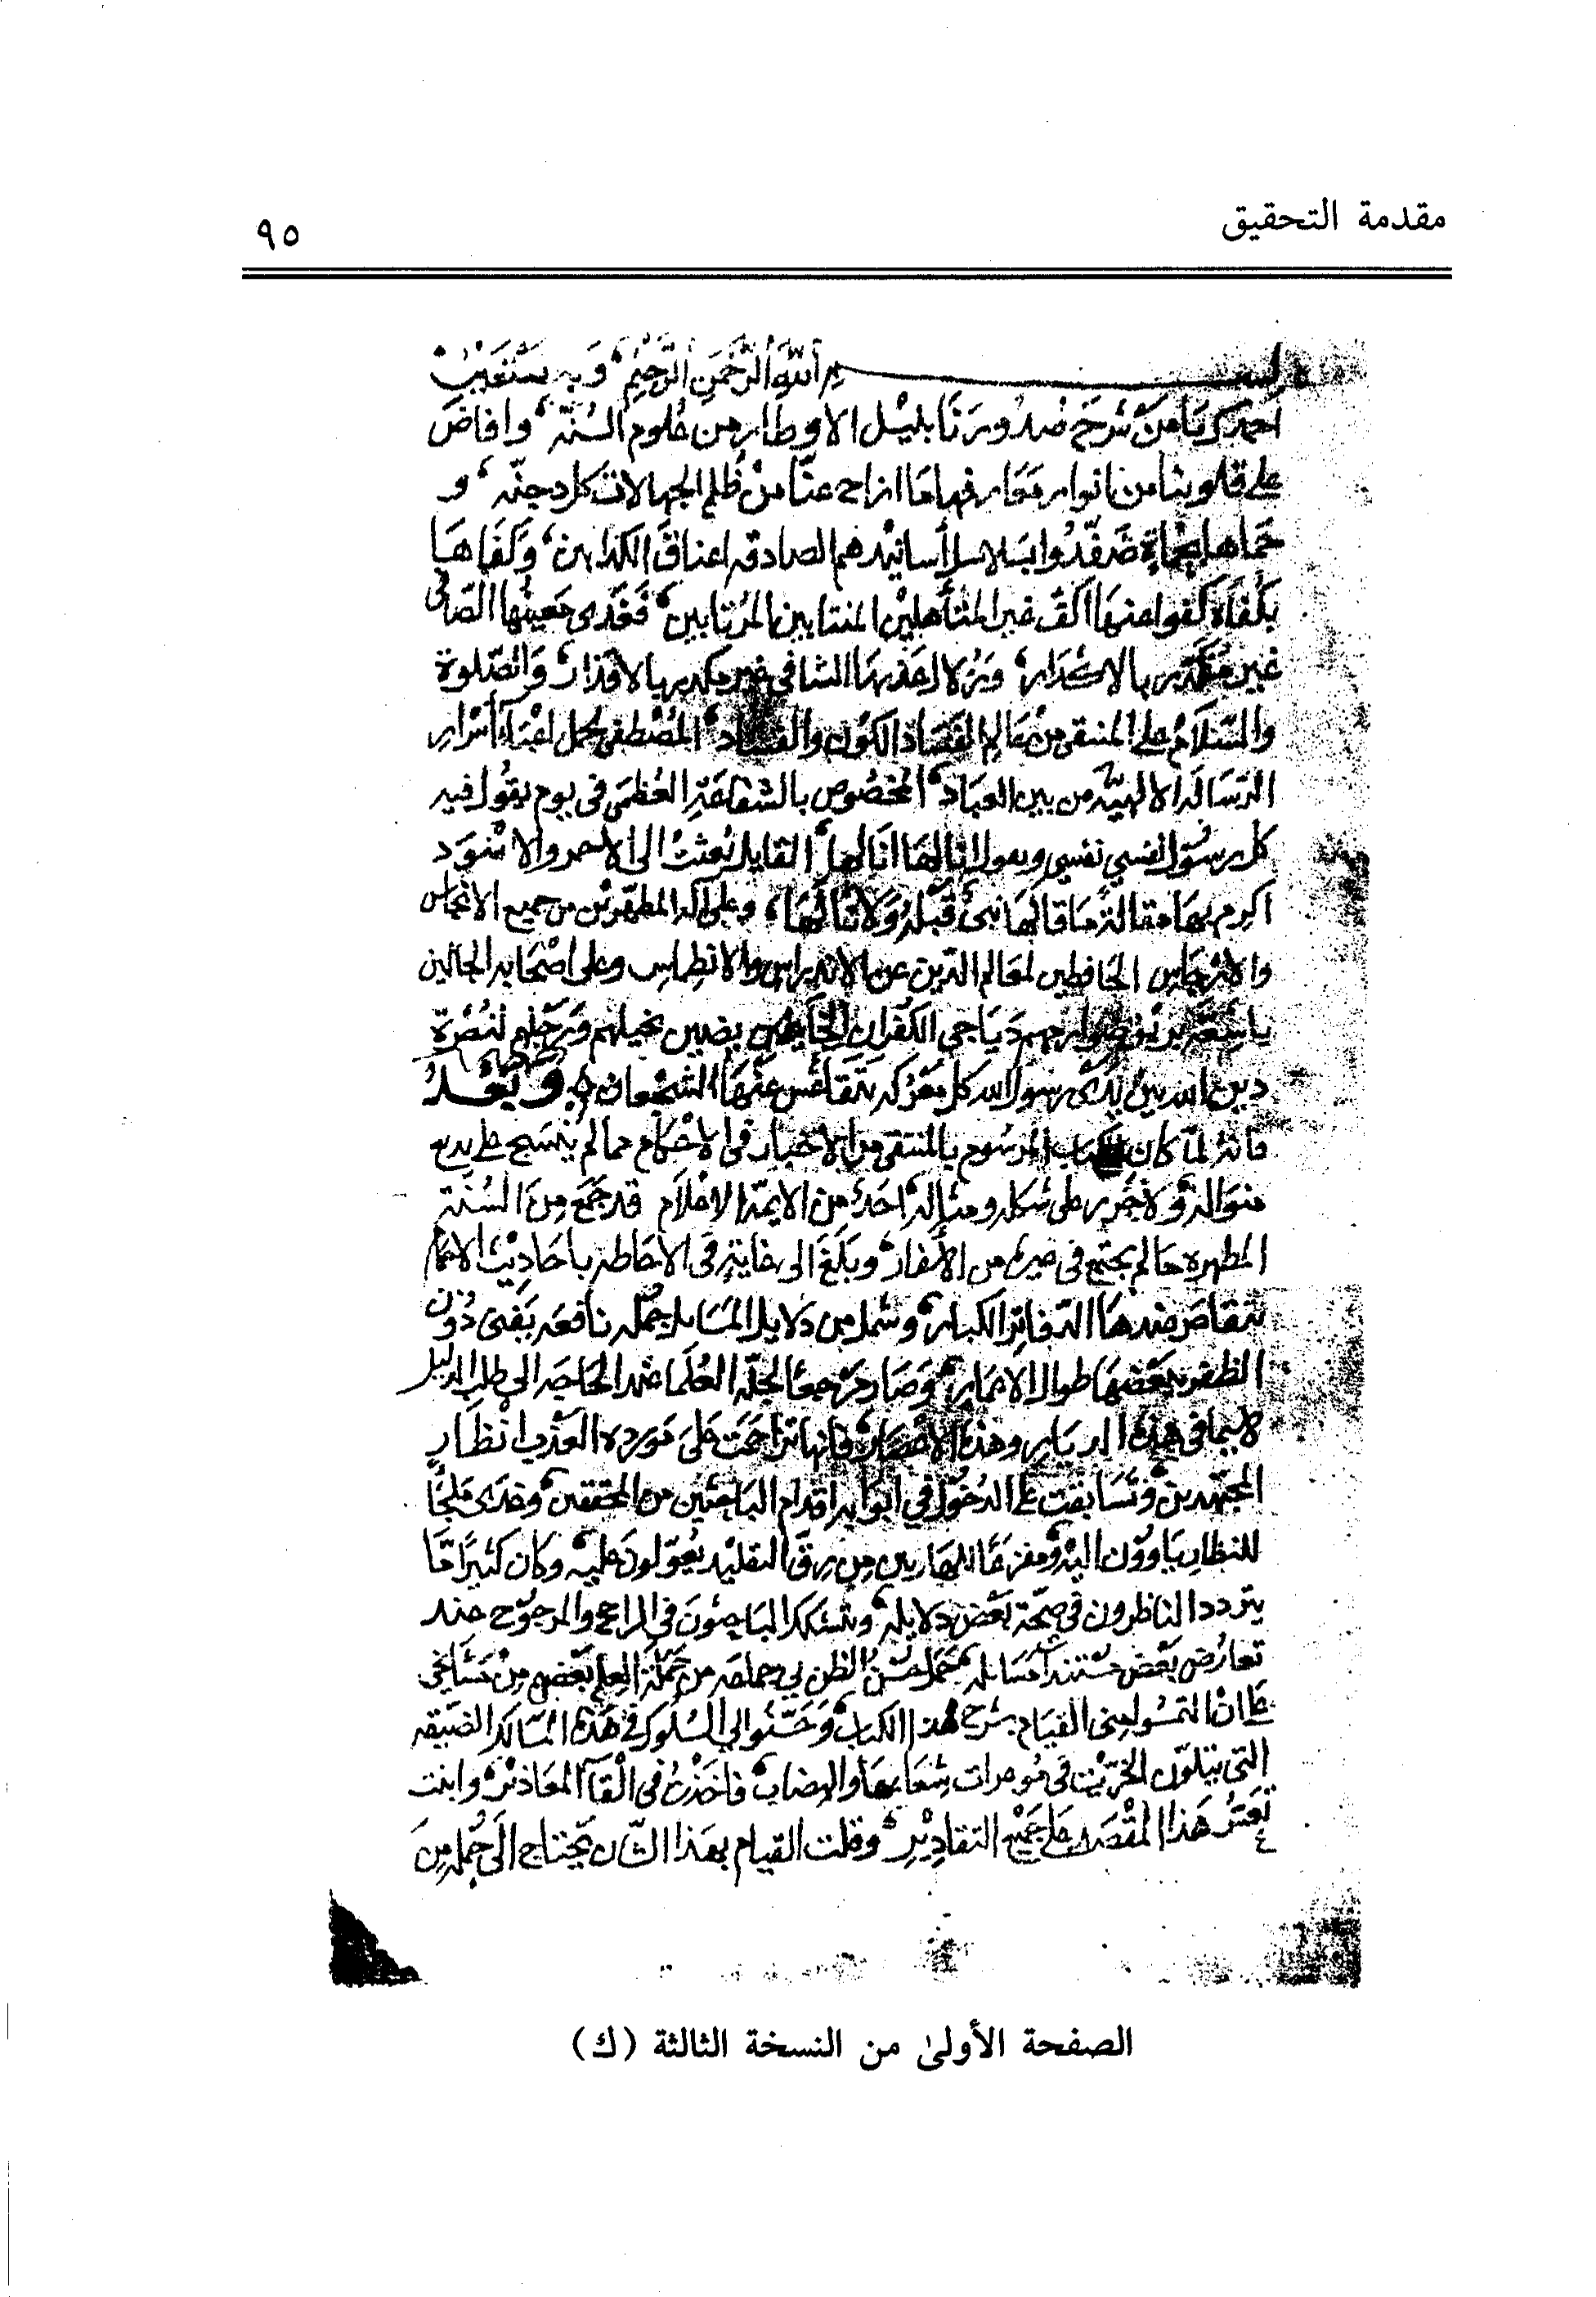 مقدمة التحقيق
٩٥
بسم الله الرحمن الرحيم وبه نستعين
احمدك يا من شرح صدورنا بنيل الاوطار من علوم السنه وافاض
على قلوبنا من انوار معارفها ما ازاح عنا من ظلم الجهالات كل دجنه و
حماها بحماة صفدوا بسلاسل أسانيدهم الصادقه اعناق الكذابين وكفاها
بكفاة كفوا عنها اكف غير المتأهلين المنتابين المرتابين فغدى معينها الصافى
غير مكدر بالاكدار وزلال عذبها الشافى غير مكدر بالاقذار والصلوة
والسلام على المنتقى من عالم الكون والفساد المصطفى لحمل اعباء أسرار
الرسالة الالهيه من بين العباد المخصوص بالشفاعة العظمى فى يوم يقول فيه
كل رسول نفسي نفسي ويقول انا لها انا لها القايل بعثت الى الاحمر والاسود
اكرم بها مقالة ما قالها نبى قبله ولا نالها وعلى آله المطهرين من جميع الانجاس
والارجاس الحافظين لمعالم الدين عن الاندراس والانطماس وعلى اصحابه الجالين
باشعة بريق صوارمهم دياجي الكفران الخايضين بخيلهم ورجلهم لنصرة
دين الله بين يدى رسول الله كل معركه تتقاعس عنها الشجعان وبعد
فانه لما كان الكتاب الموسوم بالمنتقى من الاخبار فى الاحكام مما لم ينسج على بديع
منواله ولا حرر على شكله ومثاله احد من الايمة الاعلام قد جمع من السنة
المطهره ما لم يجتمع فى غيره من الأسفار وبلغ الى غاية فى الاحاطه باحاديث الاحكام
تتقاصر عندها الدفاتر الكبار وشمل من دلايل المسايل جمله نافعه تفنى دون
الظفر ببعضها طوال الاعمار وصار مرجعا لجلة العلما عند الحاجه الى طلب الدليل
لاسيما في هذه الديار وهذه الاعصار فانها تزاحمت على مورده العذب انظار
المجتهدين وتسابقت على الدخول في ابوابه اقدام الباحثين من المحققين وغدى ملجأ
للنظار يأوون اليه ومفزعا للهاربين من رق التقليد يعولون عليه وكان كثيرا ما
يتردد الناظرون فى صحة بعض دلايله ويتشكك الباحثون في الراجح والمرجوح عند
تعارض بعض مستندات مسايله حمل حسن الظن بي جماعه من حملة العلم بعضهم من مشايخي
على ان التمسوا منى القيام بشرح هذا الكتاب وحسنوا لي السلوك في هذه المسالك الضيقه
التى يتلون الخريت فى موعرات شعابها والهضاب فاخذت فى القآ المعاذير وابنت
تعسر هذا المقصد على جميع التقادير وقلت القيام بهذا الشان يحتاج الى جملة من
الصفحة الأولىٰ من النسخة الثالثة (ك)